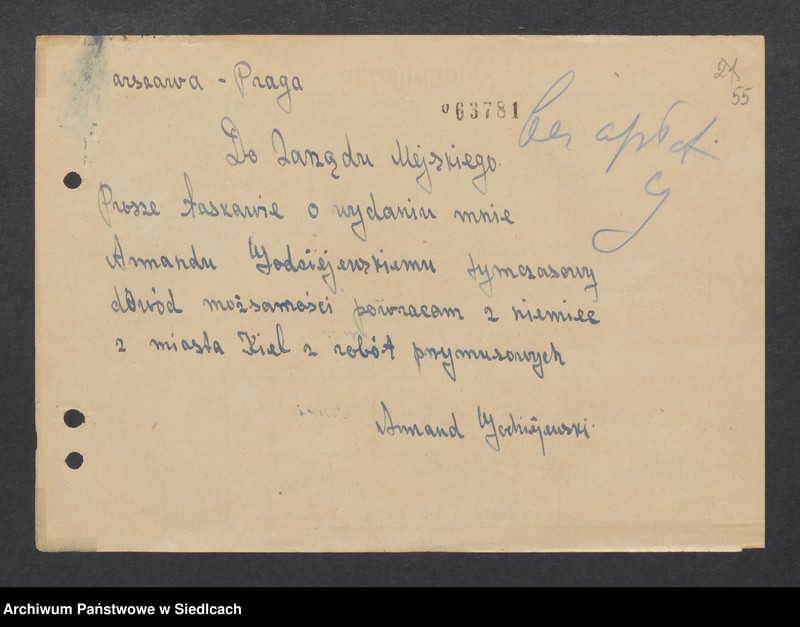 arszawa - Praga
063781
28
55
bez opłat
Do Zarządu Mejskiego.
Prosze łaskawie o wydaniu mnie
Armandu Jodciejewskiemu tymczasowy
dowód możsamości powracam z niemiec
z miasta Kiel z robót przymusowych
Armand
Archiwum Państwowe w Siedlcach